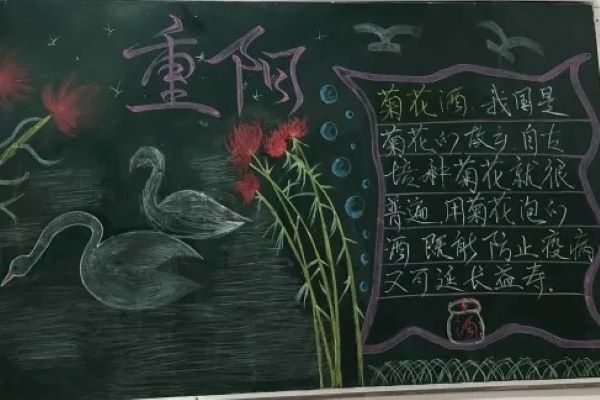 重阳
菊花酒:我国是
菊花的故乡,自古
培种菊花就很
普遍.用菊花泡的
酒,既能防止疫病
又可延长益寿.
酒